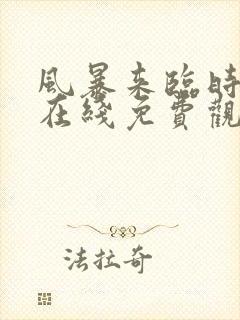 風暴来臨時
在綫免費觀
法拉奇